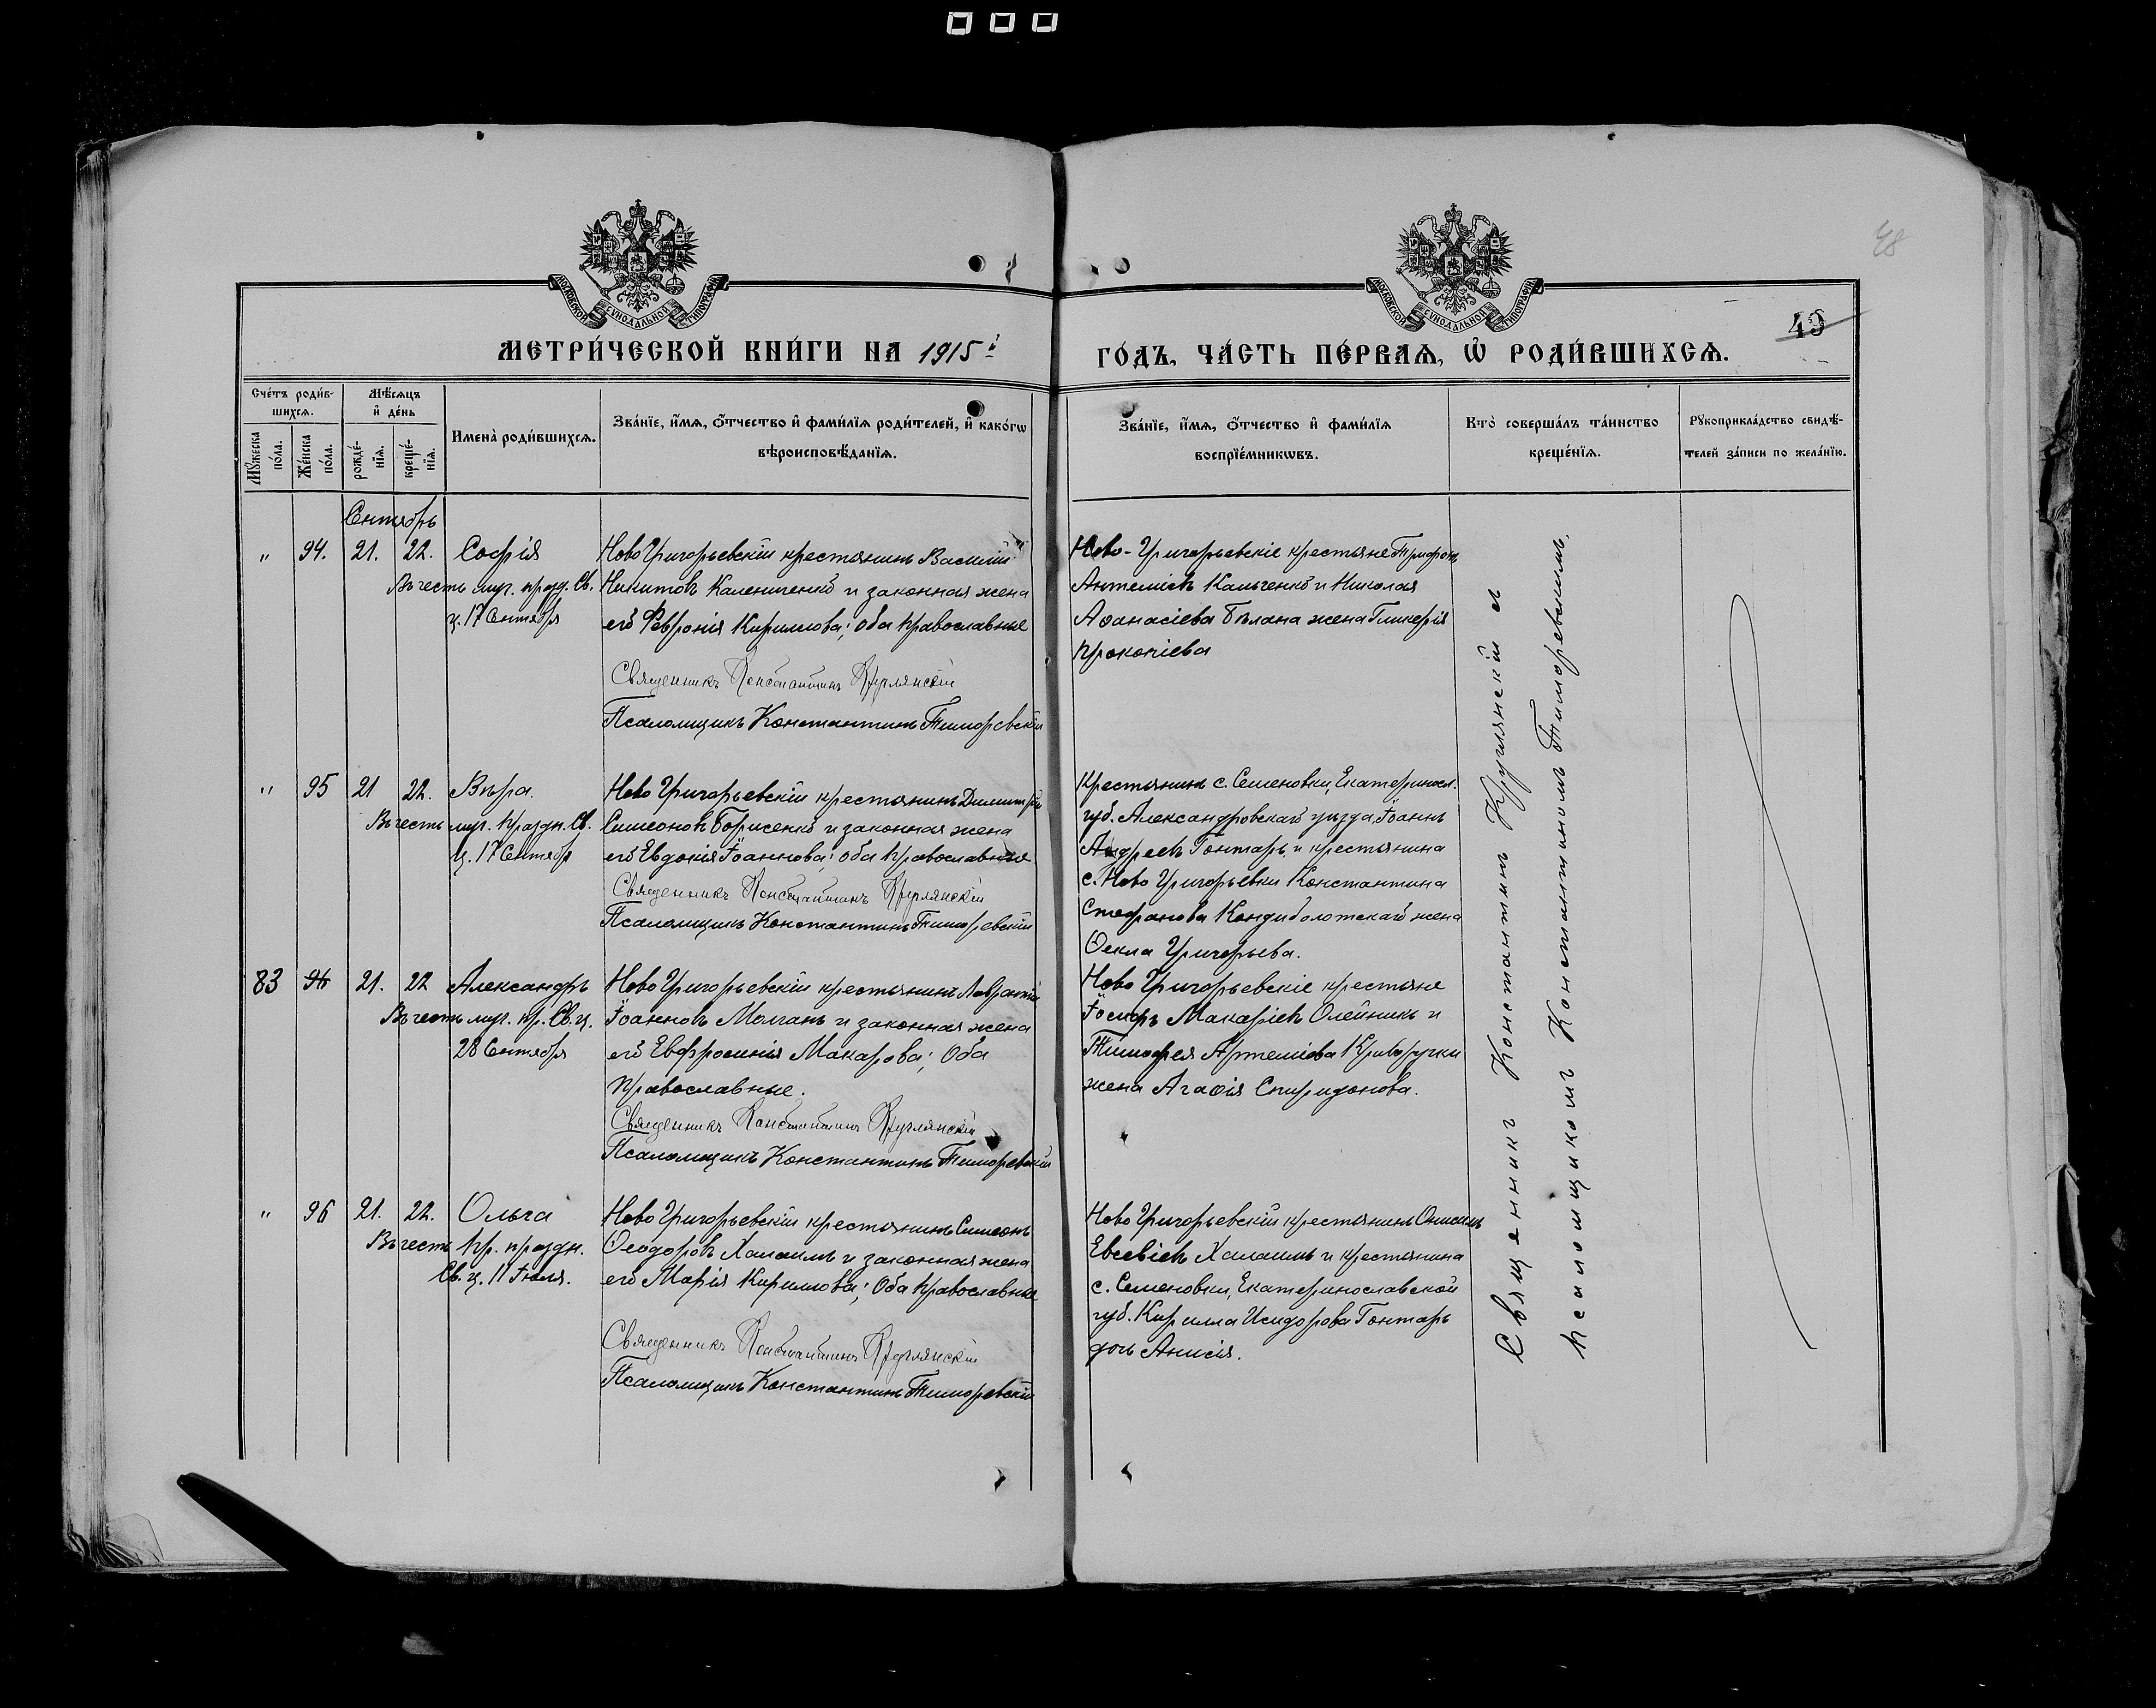 48
49
МОСКОВСКОЙ СУНОДАЛЬНОЙ ТИПОГРАФІИ
МОСКОВСКОЙ СУНОДАЛЬНОЙ ТИПОГРАФІИ
МЕТРИ́ЧЕСКОЙ КНИ́ГИ НА 1915й
ГО́ДЪ, ЧА́СТЬ ПЕ́РВАѦ, Ѡ҆ РОДИ́ВШИХСѦ.
Сче́тъ роди́в-
шихсѧ.
Мѣ́сѧцъ
и҆ де́нь
Мꙋ́жеска
по́ла.
Же́нска
по́ла.
рожде́-
нїѧ.
креще́-
нїѧ.
Имена̀ роди́вшихсѧ.
Зва́нїе, и҆́мѧ, ѻ҆́тчество и҆ фами́лїѧ роди́телей, и҆ како́гѡ
вѣроисповѣ́данїѧ.
Зва́нїе, и҆́мѧ, ѻ҆́тчество и҆ фами́лїѧ
воспрїе́мникѡвъ.
Кто̀ соверша́лъ та́инство
креще́нїѧ.
Рꙋкоприкла́дство свидѣ́-
телей за́писи по жела́нїю.
Сентябрь
" 94. 21. 22. Софія
Въ честь муч. празд. Св.
ц. 17 Сентября
Ново Григорьевскій крестьянинъ Василій
Никитовъ Калениченко и законная жена
его Февронія Кириллова; оба православные
Священникъ Константинъ Круглянскій
Псаломщикъ Константинъ Тиморевскій
Ново-Григорьевскіе крестьяне Трифонъ
Антеміевъ Кальченко и Николая
Аѳанасіева Бѣлана жена Гликерія
Прокопіева
" 95 21 22. Вѣра.
Въ честь муч. праздн. Св.
ц. 17 Сентября
Ново Григорьевскій крестьянинъ Димитрій
Симеоновъ Борисенко и законная жена
его Евдокія Іоаннова; оба православные
Священникъ Константинъ Круглянскій
Псаломщикъ Константинъ Тиморевскій
Крестьянинъ с. Семеновки, Екатериносл.
губ. Александровскаго уѣзда, Іоаннъ
Андреевъ Гонтарь, и крестьянина
с. Ново Григорьевки Константина
Стефанова Кондиболотскаго жена
Ѳекла Григорьева.
83 96 21. 22 Александръ
Въ честь муч. пр. Св. ц.
28 Сентября
Ново Григорьевскій крестьянинъ Лаврентій
Іоанновъ Молчанъ и законная жена
его Евфросинія Макарова; Оба
православные.
Священникъ Константинъ Круглянскій
Псаломщикъ Константинъ Тиморевскій
Ново Григорьевскіе крестьяне
Іосифъ Макаріевъ Олейникъ и
Тимофея Артеміова Криворучки
жена Агаѳія Спиридонова.
" 96 21. 22. Ольга
Въ честь кр. праздн.
Св. ц. 11 Іюля.
Ново Григорьевскій крестьянинъ Симеонъ
Ѳеодоровъ Халаимъ и законная жена
его Марія Кириллова; Оба православные
Священникъ Константинъ Круглянскій
Псаломщикъ Константинъ Тиморевскій
Ново Григорьевскій крестьянинъ Онисимъ
Евсевіевъ Халаимъ и крестьянина
с. Семеновки, Екатеринославской
губ. Кирилла Исидорова Гонтарь
дочь Анисія.
Священникъ Константинъ Круглянскій съ
псаломщикомъ Константиномъ Тиморевскимъ.